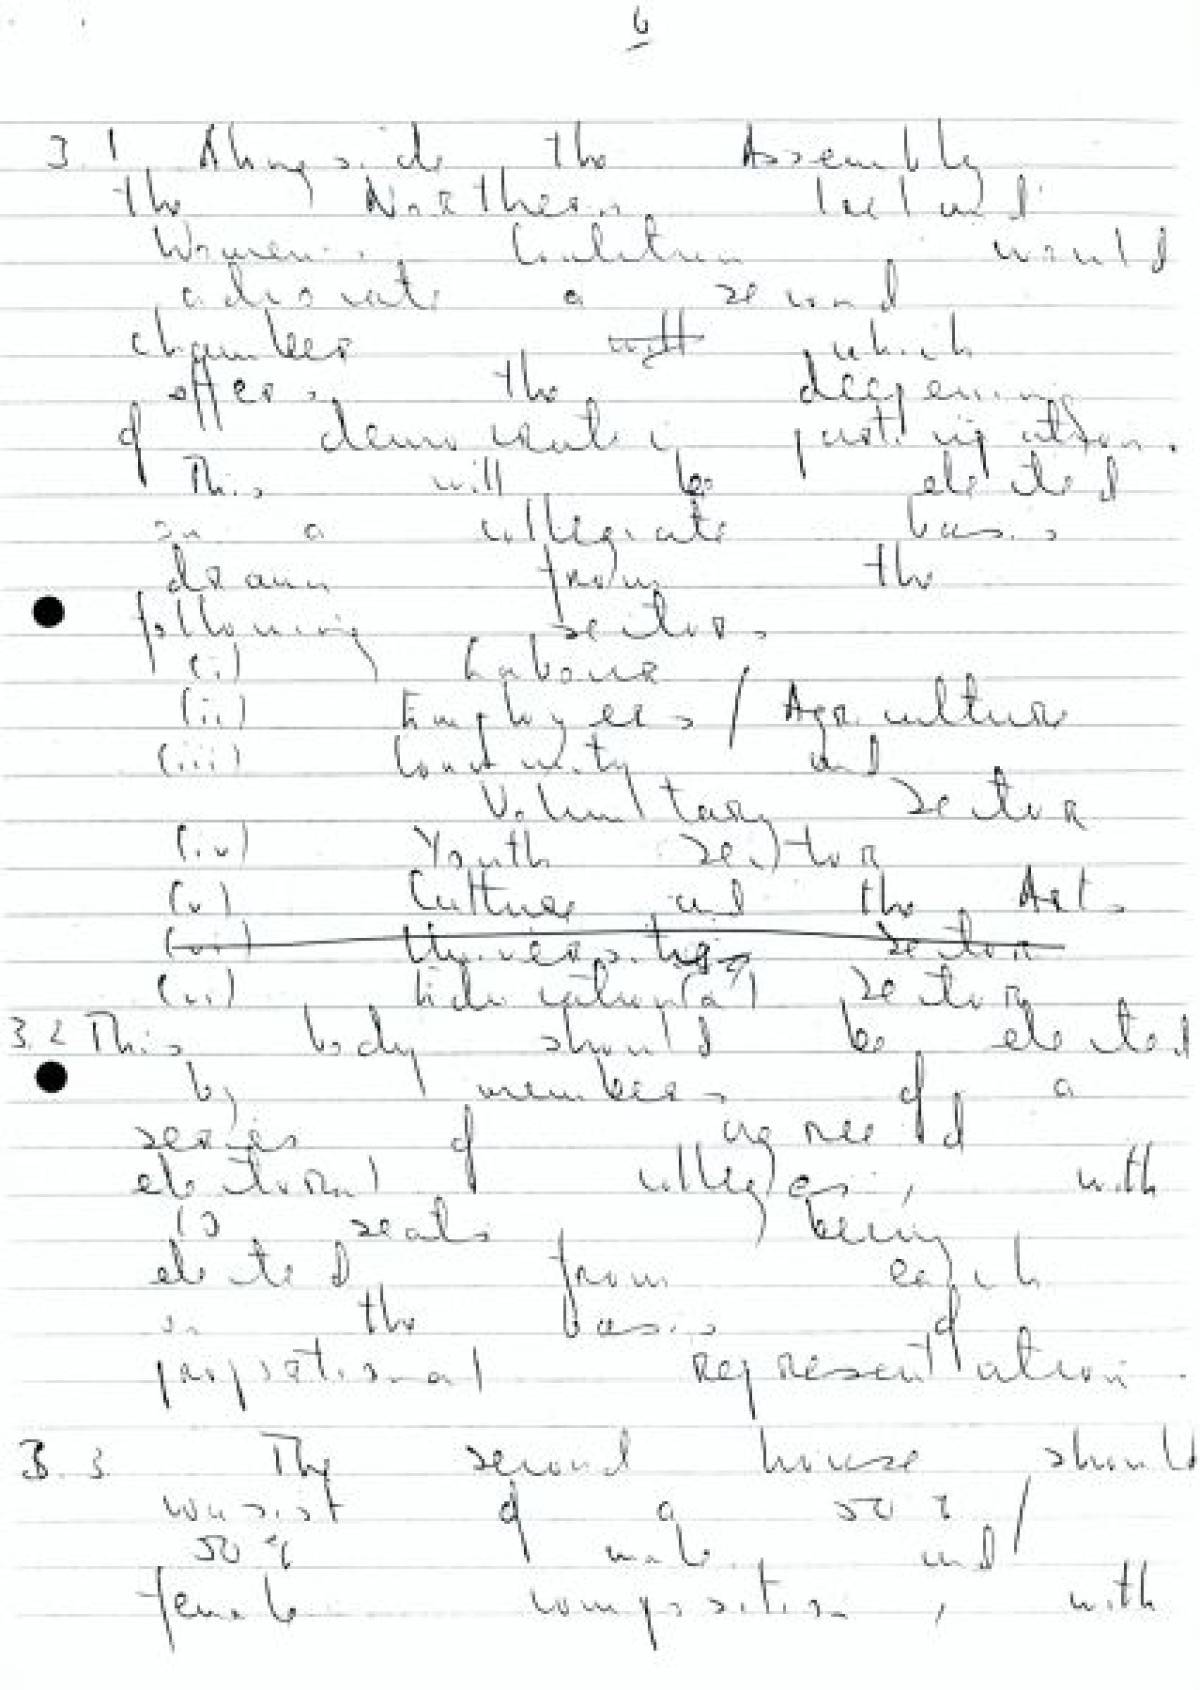 6
3.1 Alongside the Assembly
the Northern Ireland
Women's Coalition would
advocate a second
chamber ~~with~~ which
offers the deepening
of democratic participation.
This will be elected
on a collegiate basis
drawn from the
following sectors
(i) Labour
(ii) Employers / Agriculture
(iii) Community and
Voluntary Sector
(iv) Youth Sector
(v) Culture and the Arts
~~(vi) Universities Sector~~
(vi) Education(al) Sector
3.2 This body should be elected
by members of a
series of agreed
electoral colleges, with
10 seats being
elected from each
on the basis of
proportional representation.
3.3 The second house should
consist of a 50% /
50% male and
female composition, with